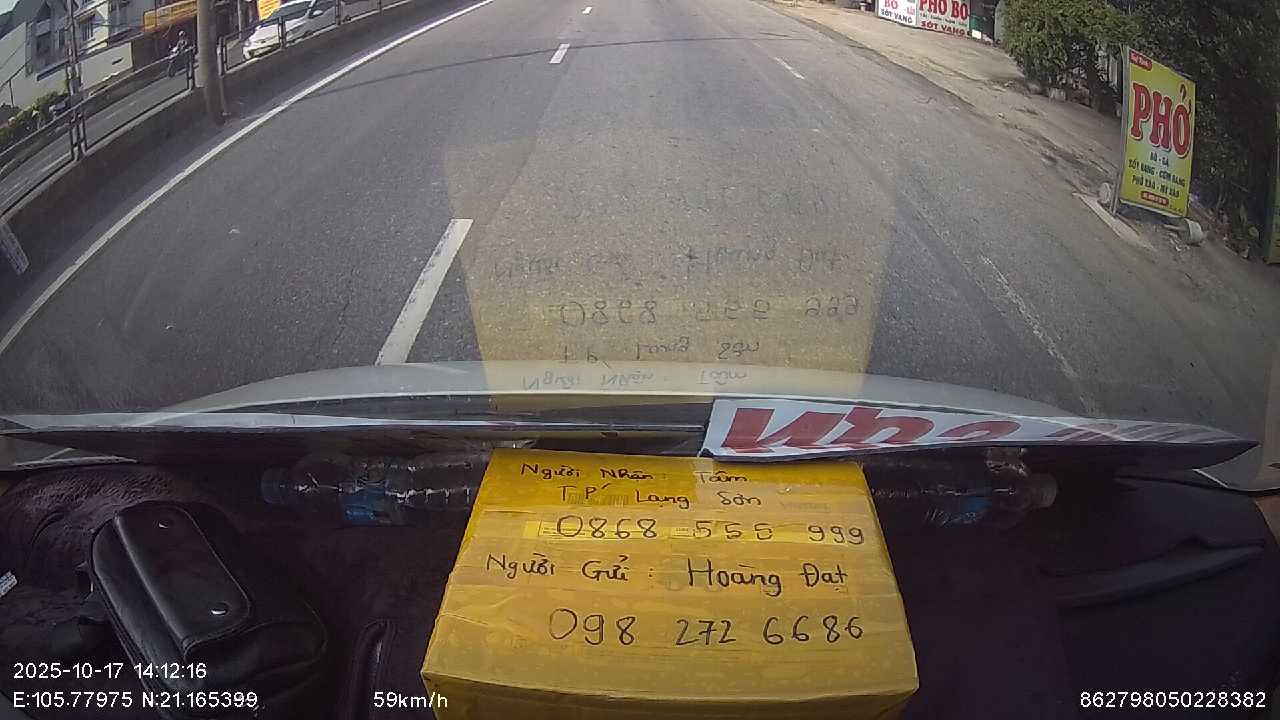 PHỞ BÒ
SỐT VANG
SỐT VANG
PHỞ
BÒ - GÀ
SỐT VANG - CƠM RANG
PHỞ XÀO - MỲ XÀO
Người Nhận: Tâm
T.P Lạng Sơn
0868 555 999
Người Gửi: Hoàng Đạt
098 272 6686
2025-10-17 14:12:16
E:105.77975 N:21.165399
59km/h
862798050228382